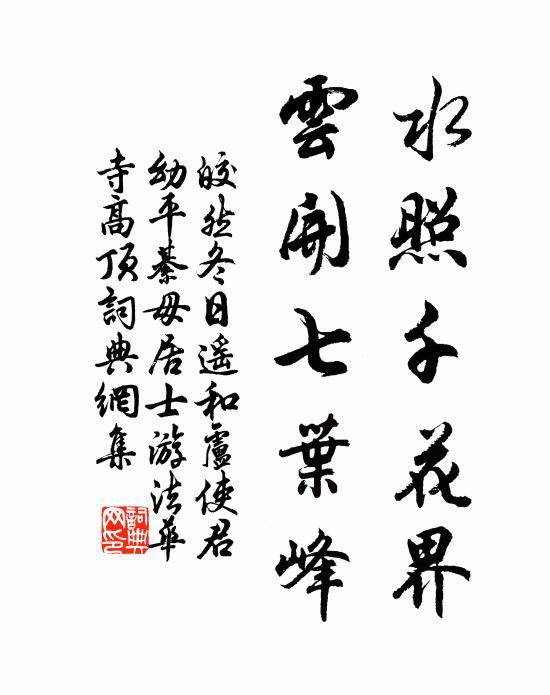 水照千花界
雲開七葉峰
皎然冬日遥和盧使君
幼平綦毋居士游法華
寺高頂詞典網集
詞典
网印